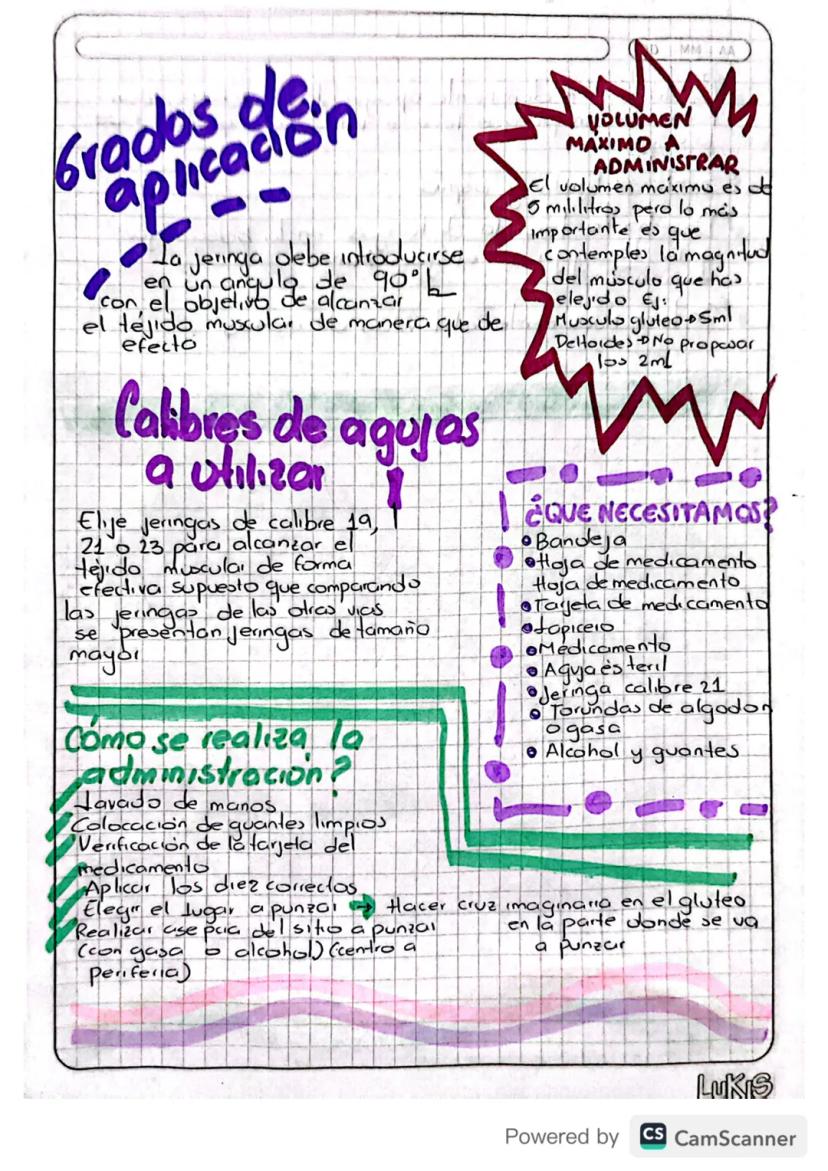 DD | MM | AA
Grados de
aplicación
La jeringa debe introducirse
en un angulo de 90°
con el objetivo de alcanzar
el tejido muscular de manera que de
efecto
VOLUMEN
MÁXIMO A
ADMINISTRAR
El volumen máximo es de
5 mililitros pero lo más
importante es que
contemples la magnitud
del músculo que has
elejido Ej:
Musculo gluteo→5ml
Deltoides→No propasar
los 2ml
Calibres de agujas
a utilizar
Elije jeringas de calibre 19,
21 o 23 para alcanzar el
tejido muscular de forma
efectiva supuesto que comparando
las jeringas de las otras vias
se presentan jeringas de tamaño
mayor
¿QUE NECESITAMOS?
• Bandeja
• Hoja de medicamento
Hoja de medicamento
• Tarjeta de medicamento
• Lapicero
• Medicamento
• Agua esteril
• Jeringa calibre 21
• Torundas de algodon
o gasa
• Alcohol y guantes
Cómo se realiza la
administración?
Lavado de manos
Colocación de guantes limpios
Verificación de la tarjeta del
medicamento
Aplicar los diez correctos
Elegir el lugar a punzar → Hacer cruz imaginaria en el gluteo
en la parte donde se va
a punzar
Realizar asepcia del sitio a punzar
(con gasa o alcohol) (centro a
periferia)
LUKIS
Powered by CS CamScanner